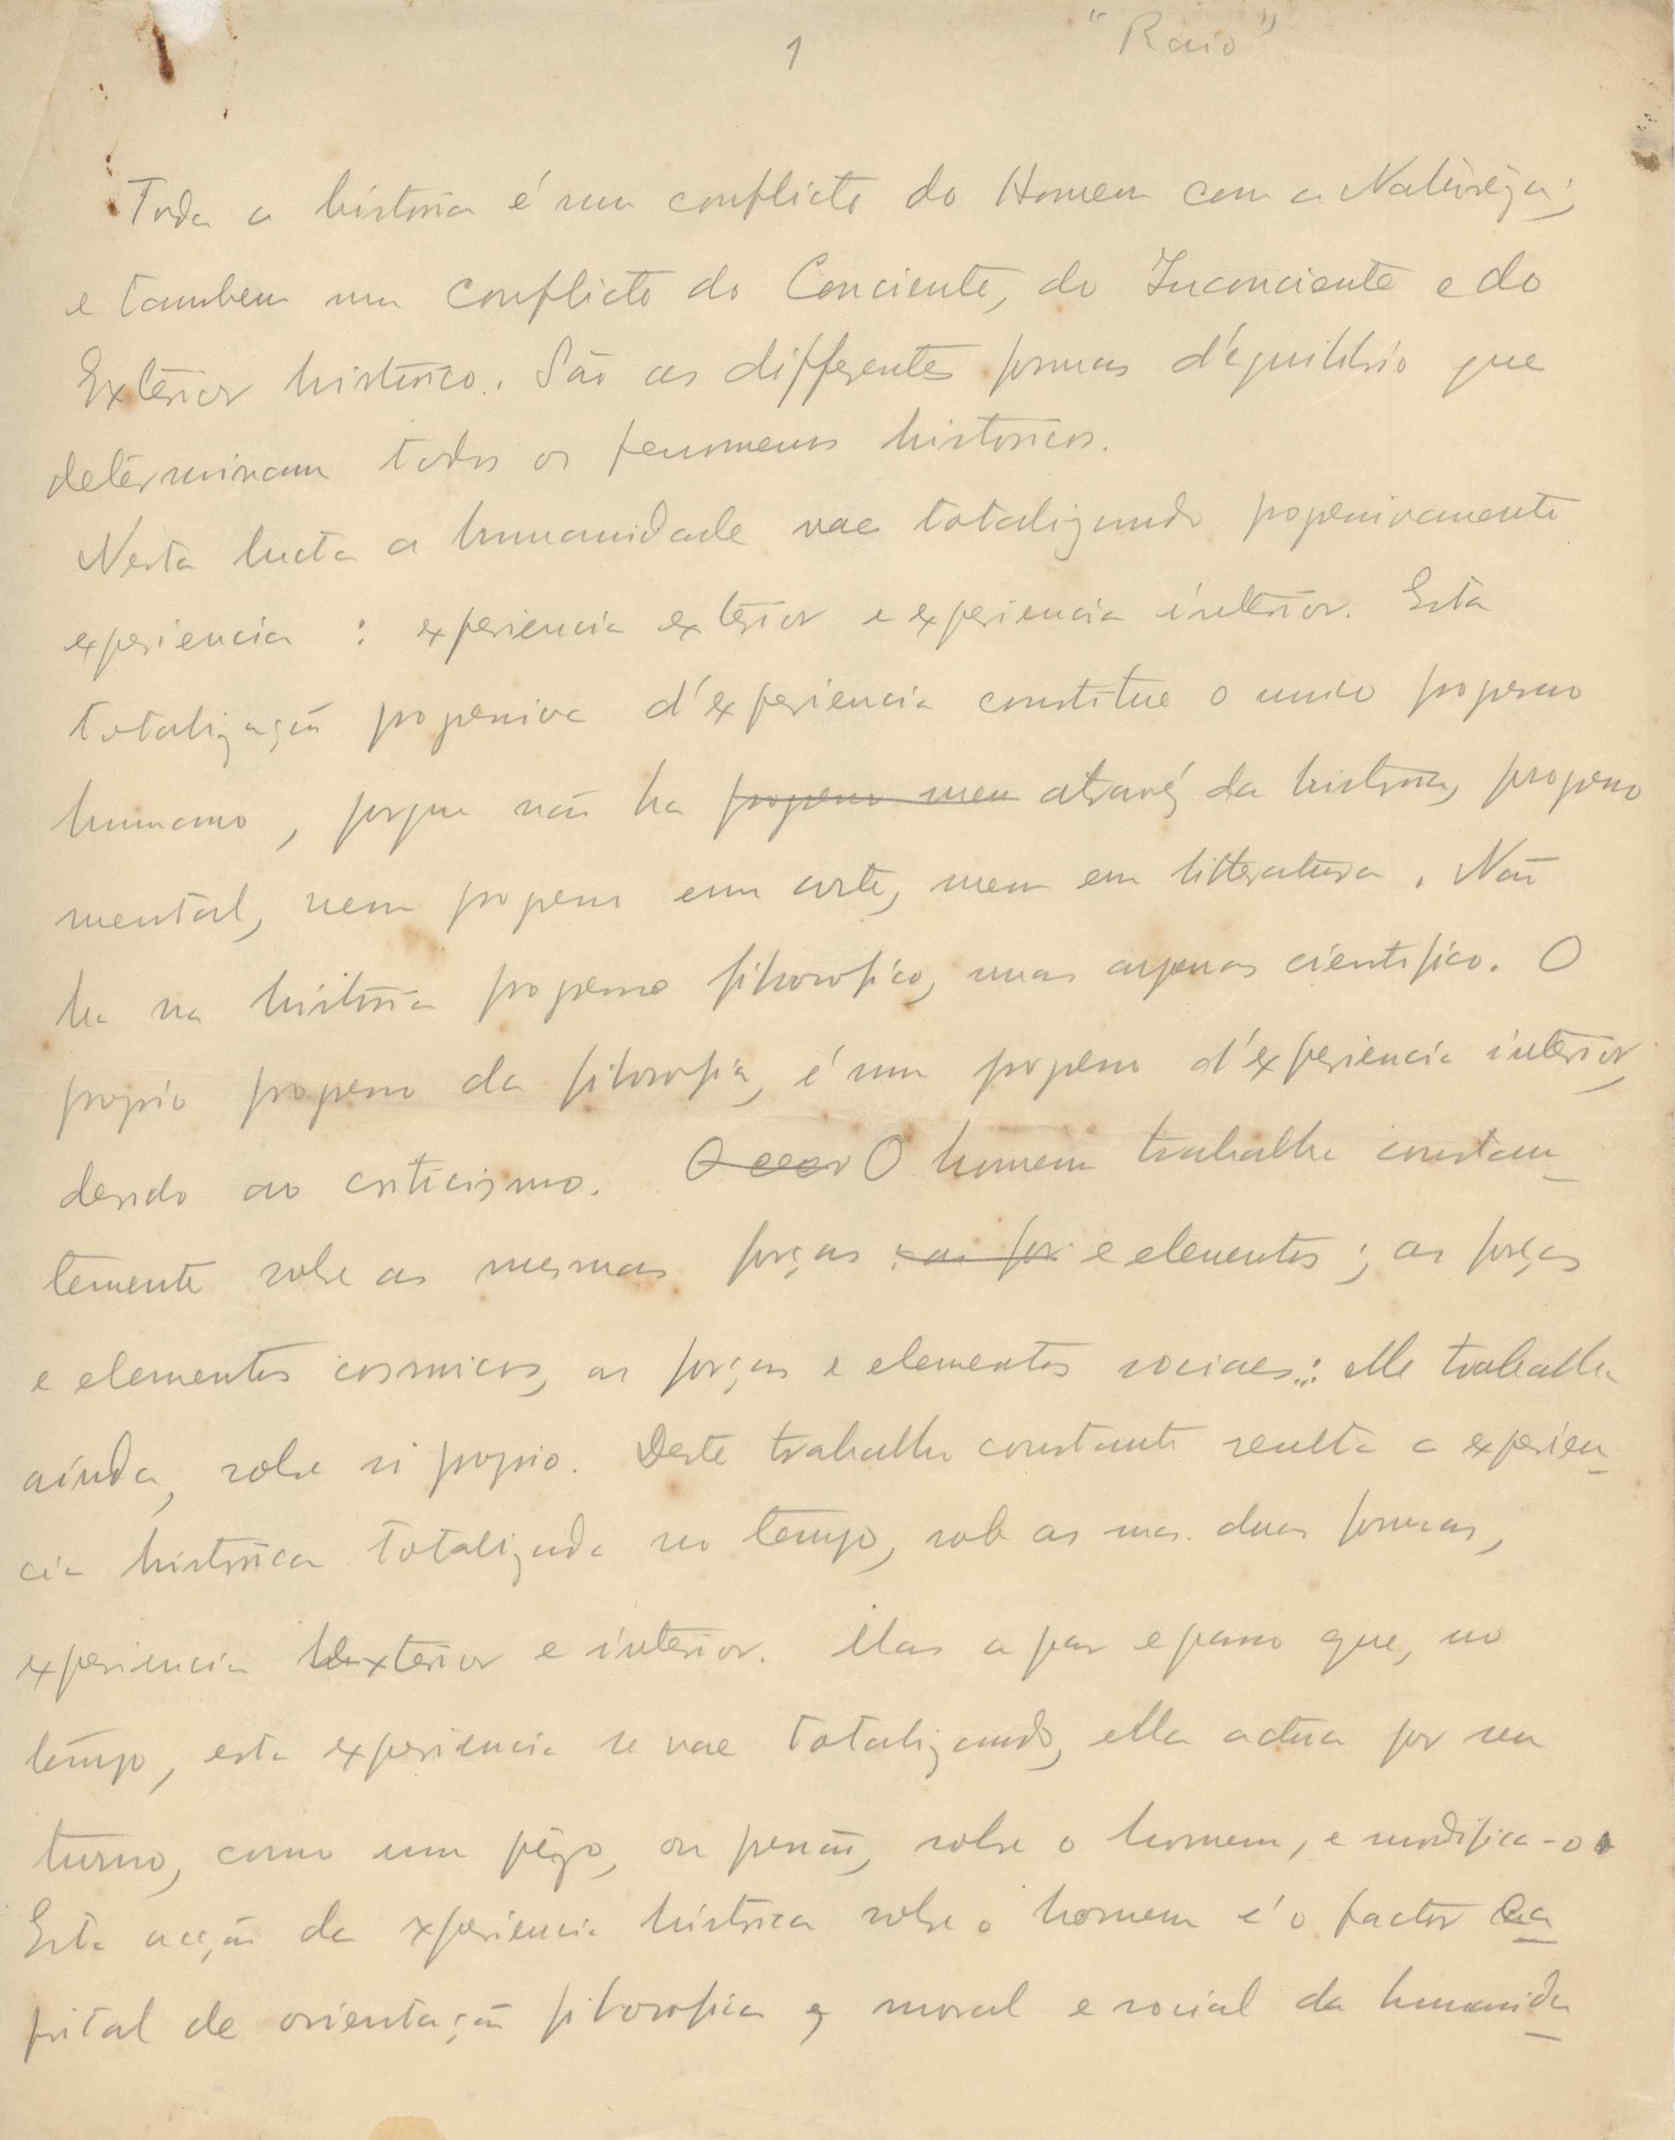 1 "Raio"
Toda a história é um conflicto do Homem com a Naturêza;
e tambem um conflicto do Conciente, do Inconciente e do
Extérior histórico. São as differentes formas d'équilibrio que
detérminam todos os fenomenos historicos.
Nesta lucta a humanidade vae totalizando progressivamente
experiencia : experiencia extérior e experiencia intérior. Esta
totalização progressiva d'experiencia constitue o unico progresso
humano, porque não ha progresso nem através da história, progresso
mental, nem progresso em arte, nem em litteratura. Não
ha na história progresso filosofico, mas apenas cientifico. O
proprio progresso da filosofia, é um progresso d'experiencia intérior,
devido ao criticismo. O O homem trabalha constan-
temente sobre as mesmas forças : as for e elementos ; as forças
e elementos cosmicos, as forças e elementos sociaes : elle trabalha
ainda, sobre si proprio. Deste trabalho constante resulta a experien-
cia histórica totalizada no tempo, sob as suas duas formas,
experiencia extérior e intérior. Mas a par e passo que, no
tempo, esta experiencia se vae totalizando, ella actua por seu
turno, como um pêzo, ou pressão, sobre o homem, e modifica-o.
Esta acção da experiencia histórica sobre o homem é o factor ca-
pital de orientação filosofica moral e social da humanida-